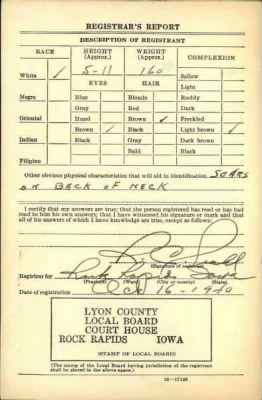 REGISTRAR'S REPORT
DESCRIPTION OF REGISTRANT
RACE HEIGHT (Approx.) WEIGHT (Approx.) COMPLEXION
White ✓ 5-11 160 Sallow
EYES HAIR Light
Negro Blue Blonde Ruddy
Gray Red Dark
Oriental Hazel Brown ✓ Freckled
Brown ✓ Black Light brown ✓
Indian Black Gray Dark brown
Bald Black
Filipino
Other obvious physical characteristics that will aid in identification. SCARS
ON BACK OF NECK
I certify that my answers are true; that the person registered has read or has had
read to him his own answers; that I have witnessed his signature or mark and that
all of his answers of which I have knowledge are true, except as follows:
(Signature of registrar)
Registrar for Rock Rapids Iowa
(Precinct) (Ward) (City or county) (State)
Date of registration Oct 16-1940
LYON COUNTY
LOCAL BOARD
COURT HOUSE
ROCK RAPIDS IOWA
(STAMP OF LOCAL BOARD)
(The stamp of the Local Board having jurisdiction of the registrant
shall be placed in the above space.)
16-17105